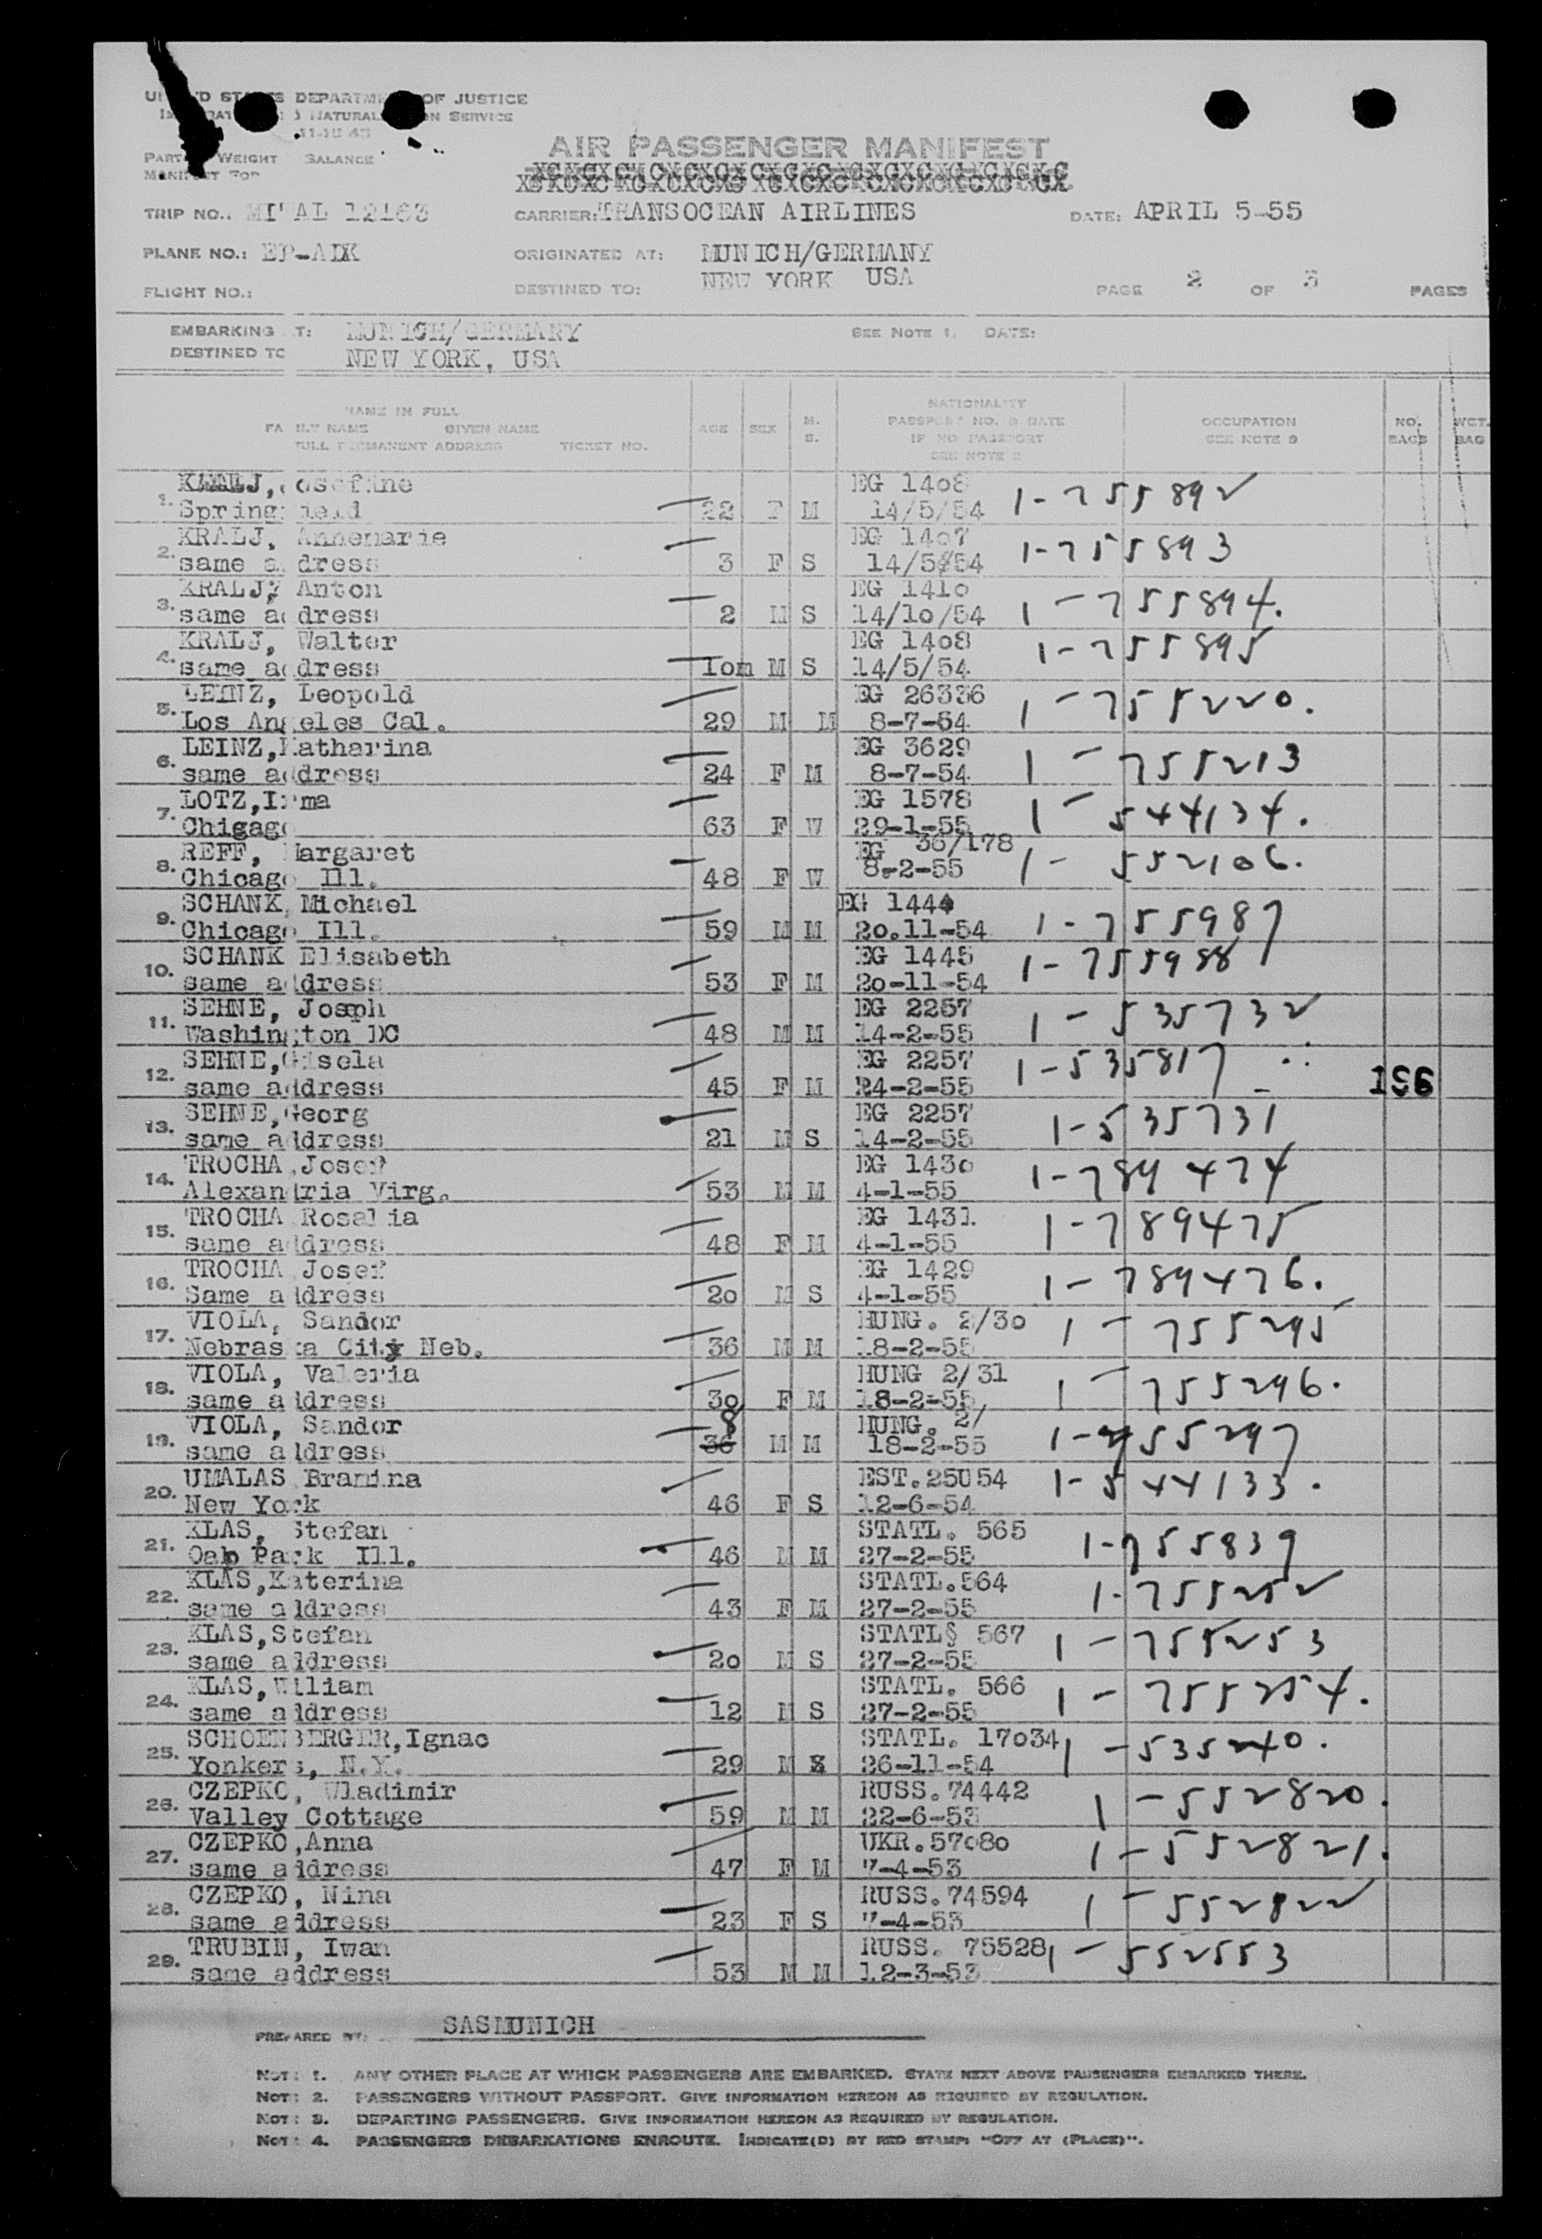 UNITED STATES DEPARTMENT OF JUSTICE
IMMIGRATION AND NATURALIZATION SERVICE
PART WEIGHT BALANCE
MANIFEST FOR
AIR PASSENGER MANIFEST
TRIP NO.: 12163 CARRIER: TRANSOCEAN AIRLINES DATE: APRIL 5-55
PLANE NO.: EP-ADK ORIGINATED AT: MUNICH/GERMANY
FLIGHT NO.: DESTINED TO: NEW YORK USA PAGE 2 OF 3 PAGES
EMBARKING AT: MUNICH/GERMANY SEE NOTE 1. DATE:
DESTINED TO NEW YORK, USA
NAME IN FULL
FAMILY NAME GIVEN NAME
FULL PERMANENT ADDRESS TICKET NO.
AGE SEX M. S.
NATIONALITY
PASSPORT NO. & DATE
IF NO PASSPORT
SEE NOTE 2
OCCUPATION
SEE NOTE 3
NO. BAGS
WGT. BAG
KRALJ, Josefine EG 1408
1. Springfield 22 F M 14/5/54 1-755892
KRALJ, Annemarie EG 1407
2. same address 3 F S 14/5/54 1-755893
KRALJ, Anton EG 1410
3. same address 2 M S 14/10/54 1-755894.
KRALJ, Walter EG 1408
4. same address 1om M S 14/5/54 1-755895
LEINZ, Leopold EG 26336
5. Los Angeles Cal. 29 M M 8-7-54 1-755220.
LEINZ, Katharina EG 3629
6. same address 24 F M 8-7-54 1-755213
LOTZ, Irma EG 1578
7. Chigago 63 F W 29-1-55 1-544134.
REFF, Margaret EG 36/178
8. Chicago Ill. 48 F W 8-2-55 1-552106.
SCHANK, Michael EG 1444
9. Chicago Ill. 59 M M 20.11-54 1-755987
SCHANK Elisabeth EG 1445
10. same address 53 F M 20-11-54 1-755988
SEHNE, Joseph EG 2257
11. Washington DC 48 M M 14-2-55 1-535732
SEHNE, Gisela EG 2257
12. same address 45 F M 14-2-55 1-535817 196
SEHNE, Georg EG 2257
13. same address 21 M S 14-2-55 1-535731
TROCHA, Josef EG 1430
14. Alexandria Virg. 53 M M 4-1-55 1-789474
TROCHA Rosalia EG 1431
15. same address 48 F M 4-1-55 1-789475
TROCHA Josef EG 1429
16. Same address 20 M S 4-1-55 1-789476.
VIOLA, Sandor HUNG. 2/30
17. Nebraska City Neb. 36 M M 18-2-55 1-755295
VIOLA, Valeria HUNG 2/31
18. same address 30 F M 18-2-55 1-755296.
VIOLA, Sandor 8 HUNG. 2/
19. same address 36 M M 18-2-55 1-755297
UMALAS Bramina EST.25U54
20. New York 46 F S 12-6-54 1-544133.
KLAS, Stefan STATL. 565
21. Oak Park Ill. 46 M M 27-2-55 1-755839
KLAS, Katerina STATL.564
22. same address 43 F M 27-2-55 1-755252
KLAS, Stefan STATL§ 567
23. same address 20 M S 27-2-55 1-755253
KLAS, Wiliam STATL. 566
24. same address 12 M S 27-2-55 1-755254.
SCHOENBERGER, Ignac STATL. 17034
25. Yonkers, N.Y. 29 M S 26-11-54 1-535240.
CZEPKO, Wladimir RUSS.74442
26. Valley Cottage 59 M M 22-6-53 1-552820.
CZEPKO, Anna UKR.57080
27. same address 47 F M 7-4-53 1-552821.
CZEPKO, Nina RUSS.74594
28. same address 23 F S 7-4-53 1-552822
TRUBIN, Iwan RUSS. 75528
29. same address 53 M M 12-3-53 1-552553
PREPARED BY: SASMUNICH
NOTE 1. ANY OTHER PLACE AT WHICH PASSENGERS ARE EMBARKED. STATE NEXT ABOVE PASSENGERS EMBARKED THERE.
NOTE 2. PASSENGERS WITHOUT PASSPORT. GIVE INFORMATION HEREON AS REQUIRED BY REGULATION.
NOTE 3. DEPARTING PASSENGERS. GIVE INFORMATION HEREON AS REQUIRED BY REGULATION.
NOTE 4. PASSENGERS DEBARKATIONS ENROUTE. INDICATE(D) BY RED STAMP: "OFF AT (PLACE)".